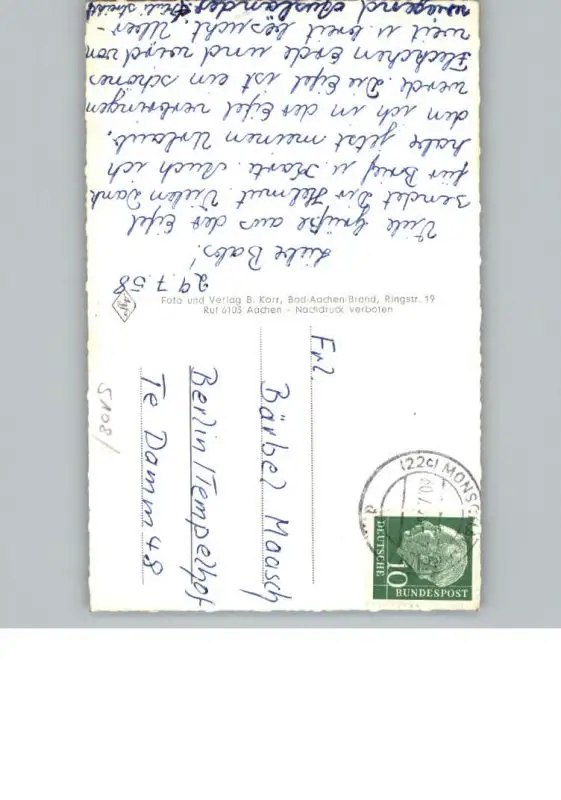 29.7.58
Liebe Babs!
Viele Grüße aus der Eifel
sendet Dir Helmut. Vielen Dank
für Brief u. Karte. Auch ich
habe jetzt meinen Urlaub,
den ich in der Eifel verbringen
werde. Die Eifel ist ein schönes
Fleckchen Erde und wird von
weit u. breit besucht. Über-
wiegend Ausländer.
Foto und Verlag B. Korr, Bad-Aachen-Brand, Ringstr. 19
Ruf 6103 Aachen - Nachdruck verboten
Frl.
Bärbel Maasch
Berlin/Tempelhof
Te Damm 48
5108/
(22c) MONSCHAU
DEUTSCHE
BUNDESPOST
10